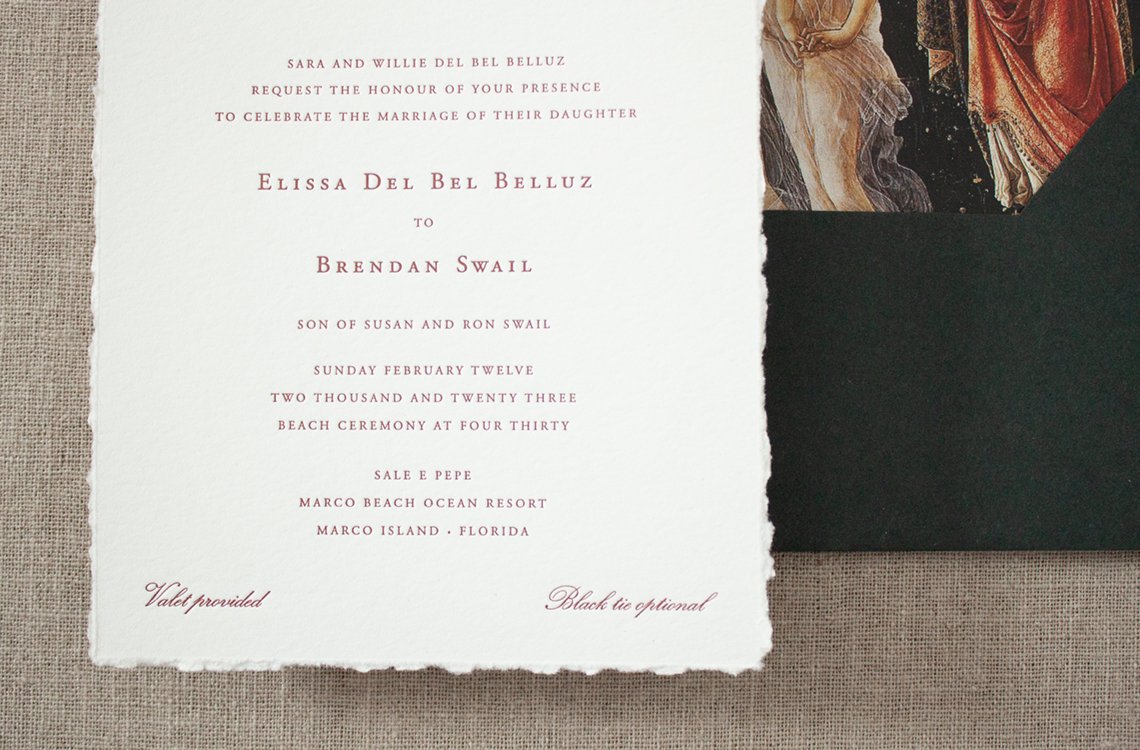 SARA AND WILLIE DEL BEL BELLUZ
REQUEST THE HONOUR OF YOUR PRESENCE
TO CELEBRATE THE MARRIAGE OF THEIR DAUGHTER
ELISSA DEL BEL BELLUZ
TO
BRENDAN SWAIL
SON OF SUSAN AND RON SWAIL
SUNDAY FEBRUARY TWELVE
TWO THOUSAND AND TWENTY THREE
BEACH CEREMONY AT FOUR THIRTY
SALE E PEPE
MARCO BEACH OCEAN RESORT
MARCO ISLAND • FLORIDA
Valet provided
Black tie optional